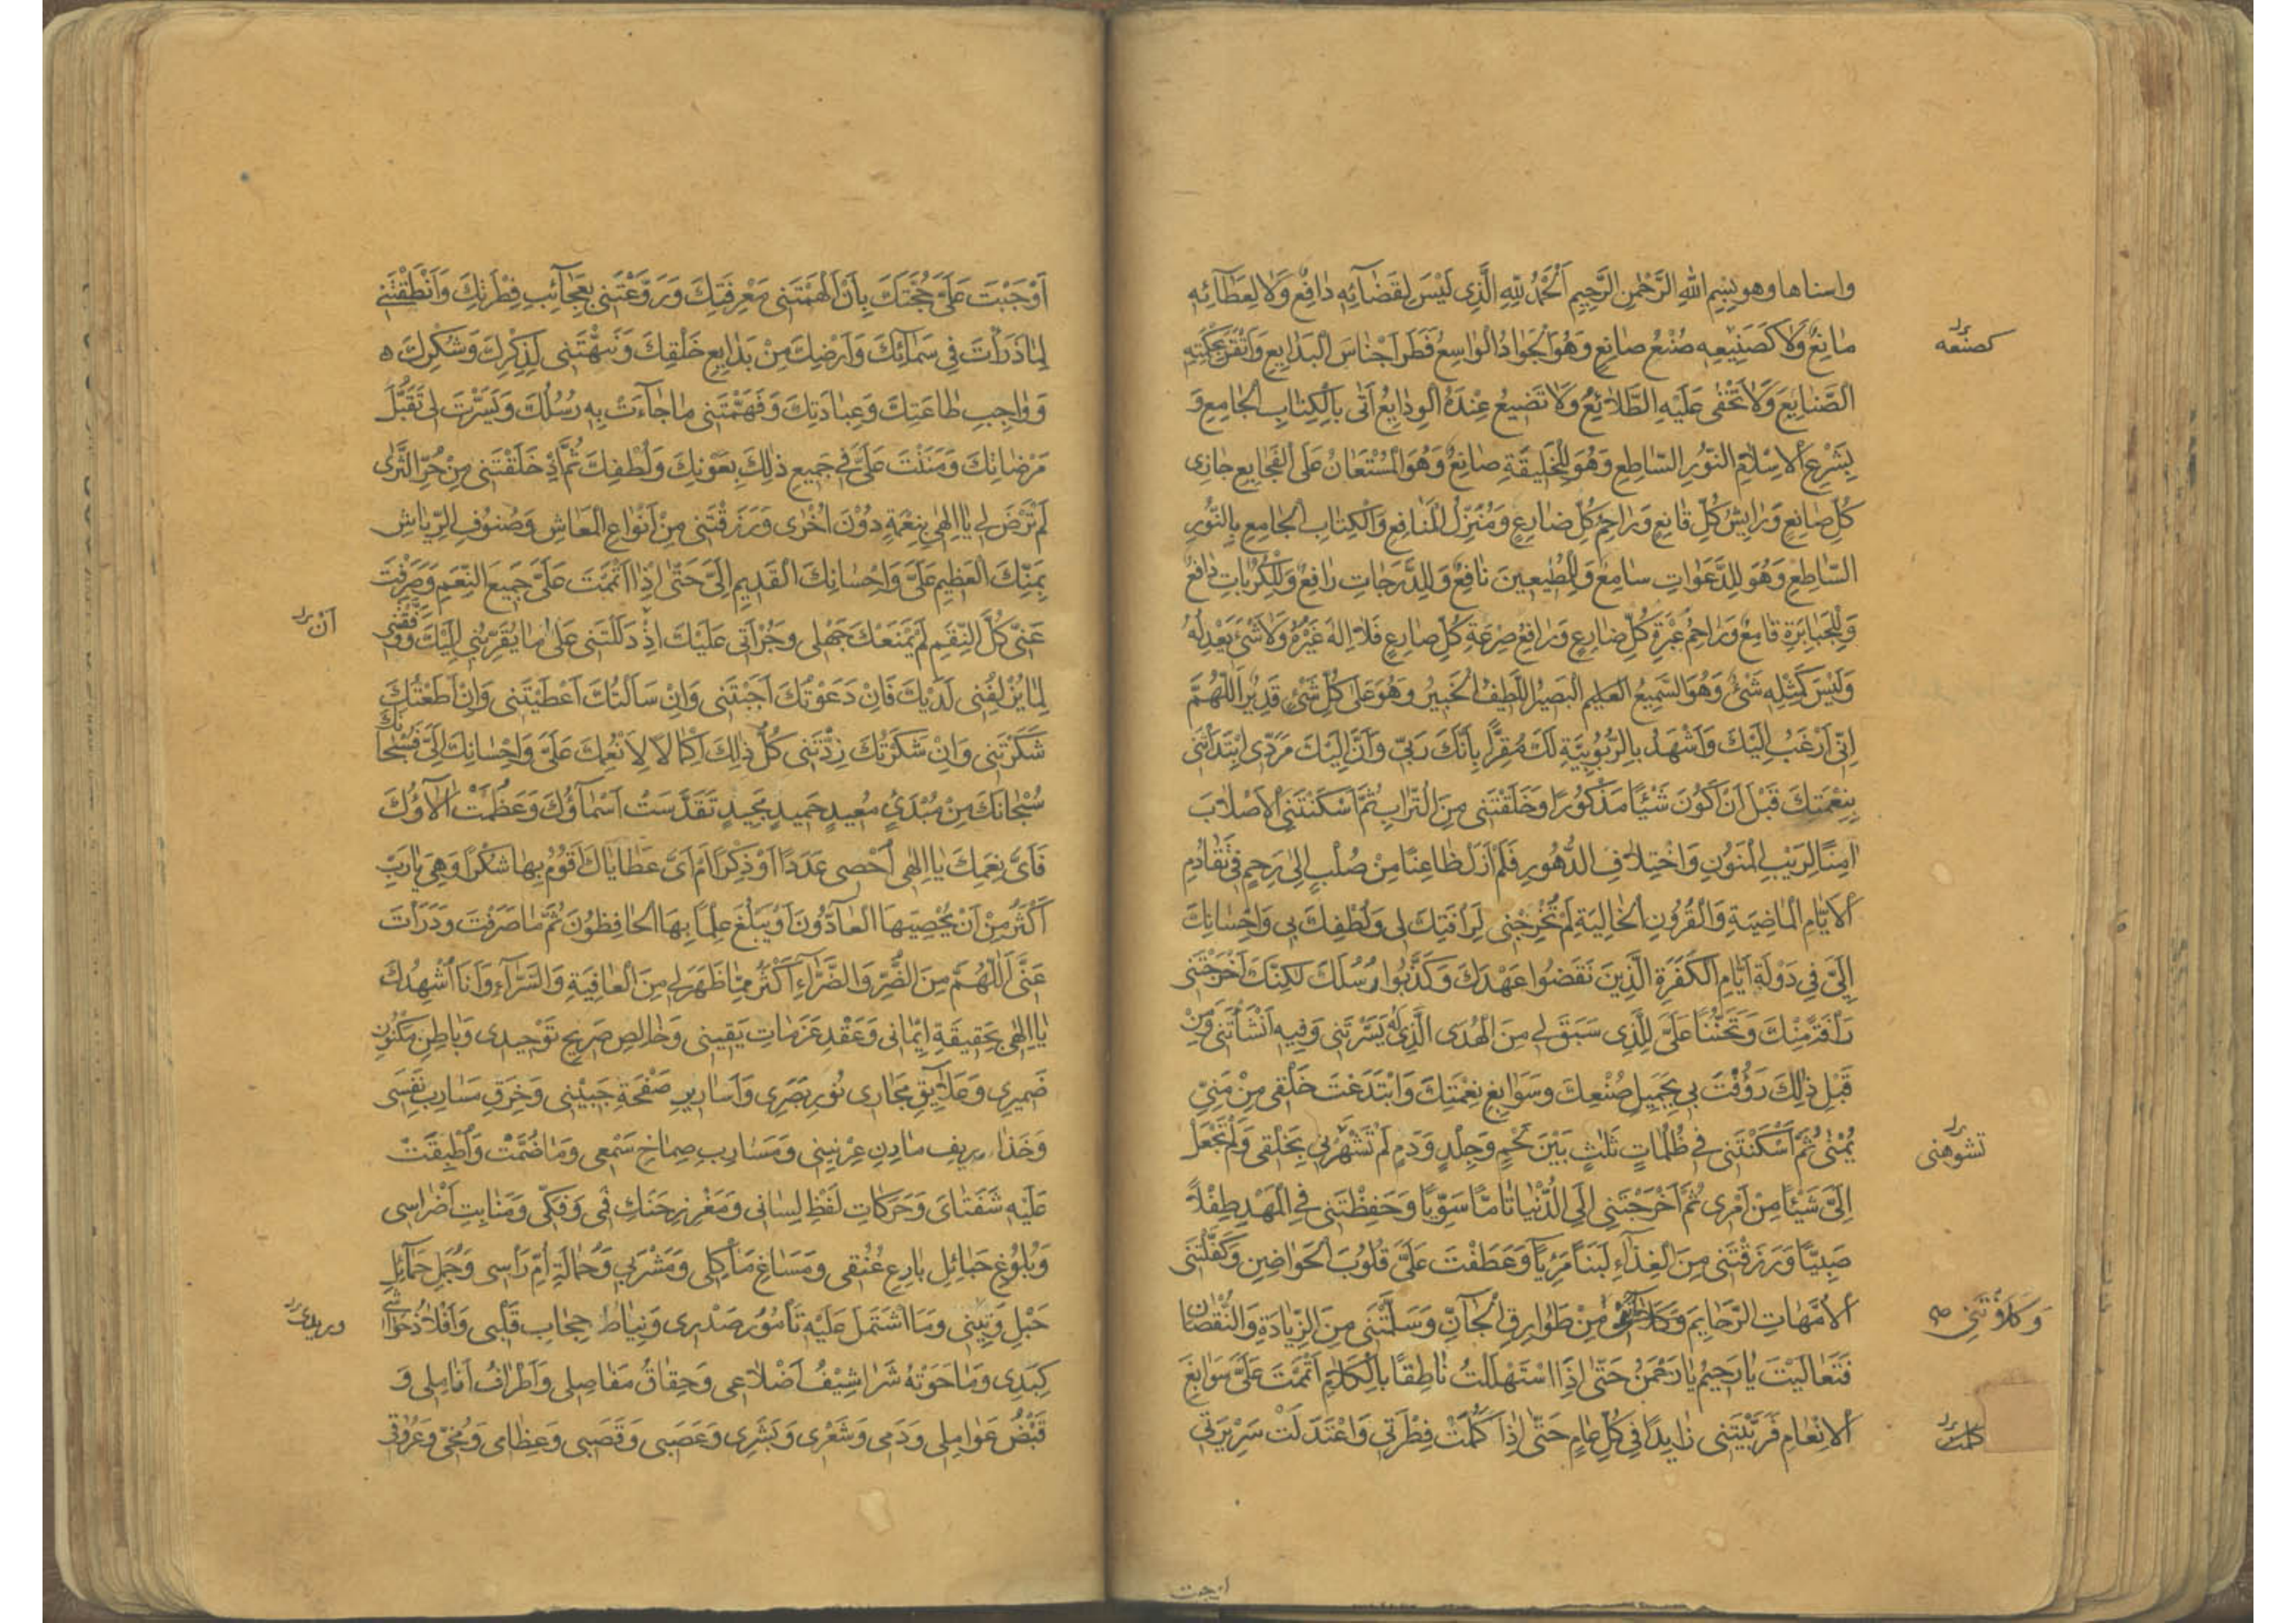 واسناها وهو بِسْمِ اللهِ الرَّحْمٰنِ الرَّحِيمِ اَلْحَمْدُ لِلّٰهِ الَّذِى لَيْسَ لِقَضَآئِهِ دَافِعٌ وَلَا لِعَطَآئِهِ
مَانِعٌ وَلَا كَصَنِيعِهِ صُنْعُ صَانِعٍ وَهُوَ الْجَوَادُ الْوَاسِعُ فَطَرَ اَجْنَاسَ الْبَدَايِعِ وَاَتْقَنَ بِحِكْمَتِهِ
كصنعه
الصَّنَايِعَ وَلَا تَخْفٰى عَلَيْهِ الطَّلَائِعُ وَلَا تَضِيعُ عِنْدَهُ الْوَدَايِعُ اَتٰى بِالْكِتَابِ الْجَامِعِ وَ
بِشَرْعِ الْاِسْلَامِ النُّورِ السَّاطِعِ وَهُوَ لِلْخَلِيقَةِ صَانِعٌ وَهُوَ الْمُسْتَعَانُ عَلَى الْفَجَايِعِ جَازِى
كُلِّ صَانِعٍ وَرَايِشُ كُلِّ قَانِعٍ وَرَاحِمُ كُلِّ ضَارِعٍ وَمُنْزِلُ الْمَنَافِعِ وَالْكِتَابِ الْجَامِعِ بِالنُّورِ
السَّاطِعِ وَهُوَ لِلدَّعَوَاتِ سَامِعٌ وَلِلْمُطِيعِينَ نَافِعٌ وَلِلدَّرَجَاتِ رَافِعٌ وَلِلْكُرُبَاتِ دَافِعٌ
وَلِلْجَبَابِرَةِ قَامِعٌ وَرَاحِمُ عَبْرَةِ كُلِّ ضَارِعٍ وَرَافِعُ صِرْعَةِ كُلِّ صَارِعٍ فَلَا اِلٰهَ غَيْرُهُ وَلَا شَىْءَ يَعْدِلُهُ
وَلَيْسَ كَمِثْلِهِ شَىْءٌ وَهُوَ السَّمِيعُ الْعَلِيمُ الْبَصِيرُ اللَّطِيفُ الْخَبِيرُ وَهُوَ عَلٰى كُلِّ شَىْءٍ قَدِيرٌ اَللّٰهُمَّ
اِنِّى اَرْغَبُ اِلَيْكَ وَاَشْهَدُ بِالرُّبُوبِيَّةِ لَكَ مُقِرًّا بِاَنَّكَ رَبِّى وَاَنَّ اِلَيْكَ مَرَدِّى اِبْتَدَأْتَنِى
بِنِعْمَتِكَ قَبْلَ اَنْ اَكُونَ شَيْئًا مَذْكُورًا وَخَلَقْتَنِى مِنَ التُّرَابِ ثُمَّ اَسْكَنْتَنِى الْاَصْلَابَ
اٰمِنًا لِرَيْبِ الْمَنُونِ وَاخْتِلَافِ الدُّهُورِ فَلَمْ اَزَلْ ظَاعِنًا مِنْ صُلْبٍ اِلٰى رَحِمٍ فِى تَقَادُمِ
الْاَيَّامِ الْمَاضِيَةِ وَالْقُرُونِ الْخَالِيَةِ لَمْ تُخْرِجْنِى لِرَأْفَتِكَ لِى وَلُطْفِكَ بِى وَاِحْسَانِكَ
اِلَىَّ فِى دَوْلَةِ اَيَّامِ الْكَفَرَةِ الَّذِينَ نَقَضُوا عَهْدَكَ وَكَذَّبُوا رُسُلَكَ لٰكِنَّكَ اَخْرَجْتَنِى
رَأْفَةً مِنْكَ وَتَحَنُّنًا عَلَىَّ لِلَّذِى سَبَقَ لِى مِنَ الْهُدَى الَّذِى لَهُ يَسَّرْتَنِى وَفِيهِ اَنْشَأْتَنِى وَمِنْ
قَبْلِ ذٰلِكَ رَؤُفْتَ بِى بِجَمِيلِ صُنْعِكَ وَسَوَابِغِ نِعْمَتِكَ وَابْتَدَعْتَ خَلْقِى مِنْ مَنِىٍّ
يُمْنٰى ثُمَّ اَسْكَنْتَنِى فِى ظُلُمَاتٍ ثَلٰثٍ بَيْنَ لَحْمٍ وَجِلْدٍ وَدَمٍ لَمْ تُشَهِّرْنِى بِخَلْقِى وَلَمْ تَجْعَلْ
تشوهنى
اِلَىَّ شَيْئًا مِنْ اَمْرِى ثُمَّ اَخْرَجْتَنِى اِلَى الدُّنْيَا تَامًّا سَوِيًّا وَحَفِظْتَنِى فِى الْمَهْدِ طِفْلًا
صَبِيًّا وَرَزَقْتَنِى مِنَ الْغِذَآءِ لَبَنًا مَرِيًّا وَعَطَفْتَ عَلَىَّ قُلُوبَ الْحَوَاضِنِ وَكَفَّلْتَنِى
الْاُمَّهَاتِ الرَّحَايِمَ مِنْ طَوَارِقِ الْجَآنِّ وَسَلَّمْتَنِى مِنَ الزِّيَادَةِ وَالنُّقْصَانِ
وَكَلَاْتَنِى صح
فَتَعَالَيْتَ يَا رَحِيمُ يَا رَحْمٰنُ حَتّٰى اِذَا اسْتَهْلَلْتُ نَاطِقًا بِالْكَلَامِ اَتْمَمْتَ عَلَىَّ سَوَابِغَ
الْاِنْعَامِ فَرَبَّيْتَنِى زَايِدًا فِى كُلِّ عَامٍ حَتّٰى اِذَا كَمُلَتْ فِطْرَتِى وَاعْتَدَلَتْ سَرِيرَتِى
كملت
اوجبت
اَوْجَبْتَ عَلَىَّ حُجَّتَكَ بِاَنْ اَلْهَمْتَنِى مَعْرِفَتَكَ وَرَوَّعْتَنِى بِعَجَآئِبِ فِطْرَتِكَ وَاَنْطَقْتَنِى
لِمَا ذَرَأْتَ فِى سَمَآئِكَ وَاَرْضِكَ مِنْ بَدَايِعِ خَلْقِكَ وَنَبَّهْتَنِى لِذِكْرِكَ وَشُكْرِكَ ه
وَوَاجِبِ طَاعَتِكَ وَعِبَادَتِكَ وَفَهَّمْتَنِى مَا جَآءَتْ بِهِ رُسُلُكَ وَيَسَّرْتَ لِى تَقَبُّلَ
مَرْضَاتِكَ وَمَنَنْتَ عَلَىَّ فِى جَمِيعِ ذٰلِكَ بِعَوْنِكَ وَلُطْفِكَ ثُمَّ اِذْ خَلَقْتَنِى مِنْ حُرِّ الثَّرٰى
لَمْ تَرْضَ لِى يَا اِلٰهِى بِنِعْمَةٍ دُوْنَ اُخْرٰى وَرَزَقْتَنِى مِنْ اَنْوَاعِ الْمَعَاشِ وَصُنُوفِ الرِّيَاشِ
بِمَنِّكَ الْعَظِيمِ عَلَىَّ وَاِحْسَانِكَ الْقَدِيمِ اِلَىَّ حَتّٰى اِذَا اَتْمَمْتَ عَلَىَّ جَمِيعَ النِّعَمِ وَصَرَفْتَ
عَنِّى كُلَّ النِّقَمِ لَمْ يَمْنَعْكَ جَهْلِى وَجُرْأَتِى عَلَيْكَ اِذْ دَلَلْتَنِى عَلٰى مَا يُقَرِّبُنِى اِلَيْكَ وَوَفَّقْتَنِى
اَنْ
لِمَا يُزْلِفُنِى لَدَيْكَ فَاِنْ دَعَوْتُكَ اَجَبْتَنِى وَاِنْ سَاَلْتُكَ اَعْطَيْتَنِى وَاِنْ اَطَعْتُكَ
شَكَرْتَنِى وَاِنْ شَكَرْتُكَ زِدْتَنِى كُلُّ ذٰلِكَ اِكْمَالًا لِاَنْعُمِكَ عَلَىَّ وَاِحْسَانِكَ اِلَىَّ فَسُبْحَانَكَ
سُبْحَانَكَ مِنْ مُبْدِئٍ مُعِيدٍ حَمِيدٍ مَجِيدٍ تَقَدَّسَتْ اَسْمَآؤُكَ وَعَظُمَتْ اٰلَاؤُكَ
فَاَىَّ نِعَمِكَ يَا اِلٰهِى اُحْصِى عَدَدًا اَوْ ذِكْرًا اَمْ اَىَّ عَطَايَاكَ اَقُومُ بِهَا شُكْرًا وَهِىَ يَا رَبِّ
اَكْثَرُ مِنْ اَنْ يُحْصِيَهَا الْعَآدُّونَ اَوْ يَبْلُغَ عِلْمًا بِهَا الْحَافِظُونَ ثُمَّ مَا صَرَفْتَ وَدَرَأْتَ
عَنِّى اَللّٰهُمَّ مِنَ الضُّرِّ وَالضَّرَّآءِ اَكْثَرُ مِمَّا ظَهَرَ لِى مِنَ الْعَافِيَةِ وَالسَّرَّآءِ وَاَنَا اُشْهِدُكَ
يَا اِلٰهِى بِحَقِيقَةِ اِيْمَانِى وَعَقْدِ عَزَمَاتِ يَقِينِى وَخَالِصِ صَرِيحِ تَوْحِيدِى وَبَاطِنِ مَكْنُونِ
ضَمِيرِى وَعَلَآئِقِ مَجَارِى نُورِ بَصَرِى وَاَسَارِيرِ صَفْحَةِ جَبِيْنِى وَخَرَقِ مَسَارِبِ نَفَسِى
وَخَذَارِيفِ مَارِنِ عِرْنِينِى وَمَسَارِبِ صِمَاخِ سَمْعِى وَمَا ضُمَّتْ وَاَطْبَقَتْ
عَلَيْهِ شَفَتَاىَ وَحَرَكَاتِ لَفْظِ لِسَانِى وَمَغْرِزِ حَنَكِ فَمِى وَفَكِّى وَمَنَابِتِ اَضْرَاسِى
وَبُلُوغِ حَبَائِلِ بَارِعِ عُنُقِى وَمَسَاغِ مَأْكَلِى وَمَشْرَبِى وَحِمَالَةِ اُمِّ رَأْسِى وَجُمَلِ حَمَآئِلِ
حَبْلِ وَتِينِى وَمَا اشْتَمَلَ عَلَيْهِ تَامُوْرُ صَدْرِى وَنِيَاطُ حِجَابِ قَلْبِى وَاَفْلَاذُ حَوَاشِى
كَبِدِى وَمَا حَوَتْهُ شَرَاشِيْفُ اَضْلَاعِى وَحِقَاقُ مَفَاصِلِى وَاَطْرَافُ اَنَامِلِى وَ
قَبْضُ عَوَامِلِى وَدَمِى وَشَعْرِى وَبَشَرِى وَعَصَبِى وَقَصَبِى وَعِظَامِى وَمُخِّى وَعُرُوقِى